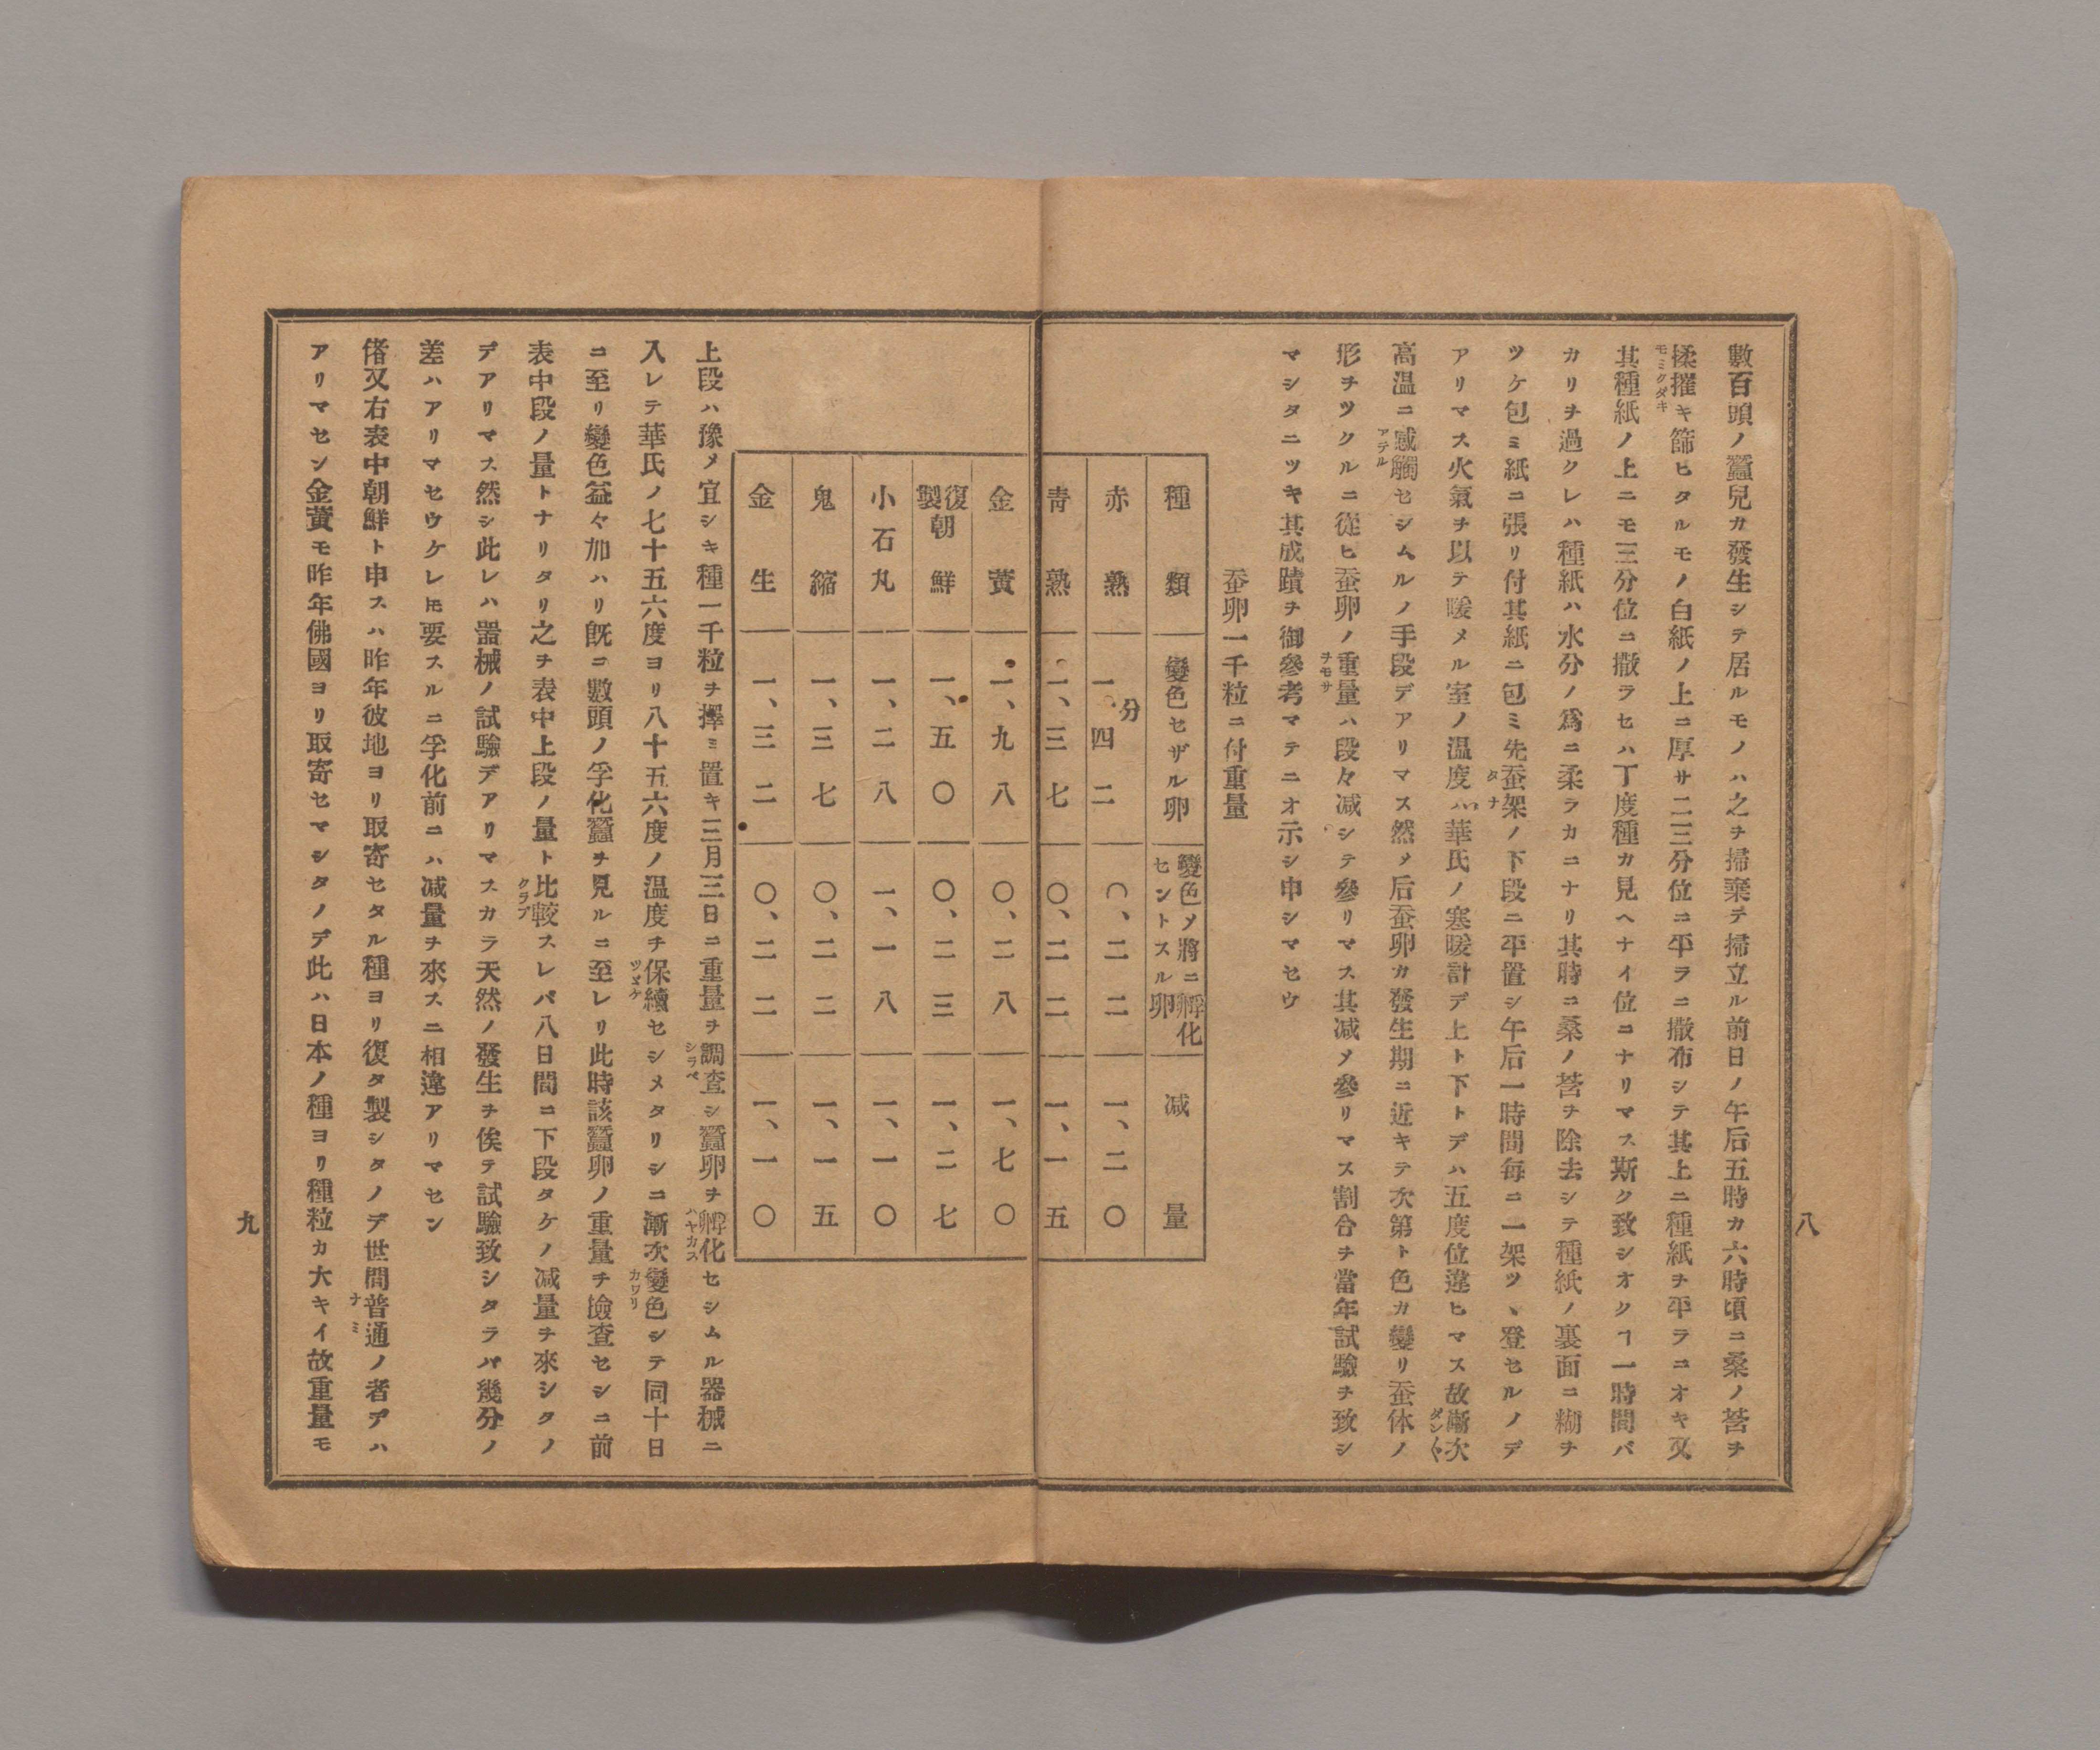 八
數百頭ノ蠶兒カ發生シテ居ルモノハ之ヲ掃棄テ掃立ル前日ノ午后五時カ六時頃ニ桑ノ莟ヲ
揉摧キ篩ヒタルモノ白紙ノ上ニ厚サ二三分位ニ平ラニ撒布シテ其上ニ種紙ヲ平ラニオキ又
モミクダキ
其種紙ノ上ニモ三分位ニ撒ラセハ丁度種カ見ヘナイ位ニナリマス斯ク致シオクヿ一時間バ
カリヲ過クレハ種紙ハ水分ノ爲ニ柔ラカニナリ其時ニ桑ノ莟ヲ除去シテ種紙ノ裏面ニ糊ヲ
ツケ包ミ紙ニ張リ付其紙ニ包ミ先蚕架ノ下段ニ平置シ午后一時間毎ニ一架ツヽ登セルノデ
タナ
アリマス火氣ヲ以テ暖メル室ノ温度ハ華氏ノ寒暖計デ上ト下トデハ五度位違ヒマス故漸次
ダン〱
高温ニ感觸セシムルノ手段デアリマス然メ后蚕卵カ發生期ニ近キテ次第ト色カ變リ蚕体ノ
アテル
形ヲツクルニ從ヒ蚕卵ノ重量ハ段々減シテ參リマス其減メ參リマス割合ヲ當年試驗ヲ致シ
ヲモサ
マシタニツキ其成蹟ヲ御參考マテニオ示シ申シマセウ
蚕卵一千粒ニ付重量
種類 變色セザル卵 變色メ將ニ孵化セントスル卵 減量
赤熟 一、四二分 〇、二二 一、二〇
青熟 一、三七 〇、二二 一、一五
金黄 一、九八 〇、二八 一、七〇
復製朝鮮 一、五〇 〇、二三 一、二七
小石丸 一、二八 一、一八 一、一〇
鬼縮 一、三七 〇、二二 一、一五
金生 一、三二 〇、二二 一、一〇
上段ハ豫メ宜シキ種一千粒ヲ擇ミ置キ三月三日ニ重量ヲ調査シ蠶卵ヲ孵化セシムル器械ニ
シラベ
ハヤカス
入レテ華氏ノ七十五六度ヨリ八十五六度ノ温度ヲ保續セシメタリシニ漸次變色シテ同十日
ツヾケ
カワリ
ニ至リ變色益々加ハリ既ニ數頭ノ孚化蠶ヲ見ルニ至レリ此時該蠶卵ノ重量ヲ撿査セシニ前
表中段ノ量トナリタリ之ヲ表中上段ノ量ト比較スレバ八日間ニ下段タケノ減量ヲ來シタノ
クラブ
デアリマス然シ此レハ噐械ノ試驗デアリマスカラ天然ノ發生ヲ俟テ試驗致シタラバ幾分ノ
差ハアリマセウケレ𪜈要スルニ孚化前ニハ減量ヲ來スニ相違アリマセン
偖又右表中朝鮮ト申スハ昨年彼地ヨリ取寄セタル種ヨリ復タ製シタノデ世間普通ノ者デハ
ナミ
アリマセン金黄モ昨年佛國ヨリ取寄セマシタノデ此ハ日本ノ種ヨリ種粒カ大キイ故重量モ
九